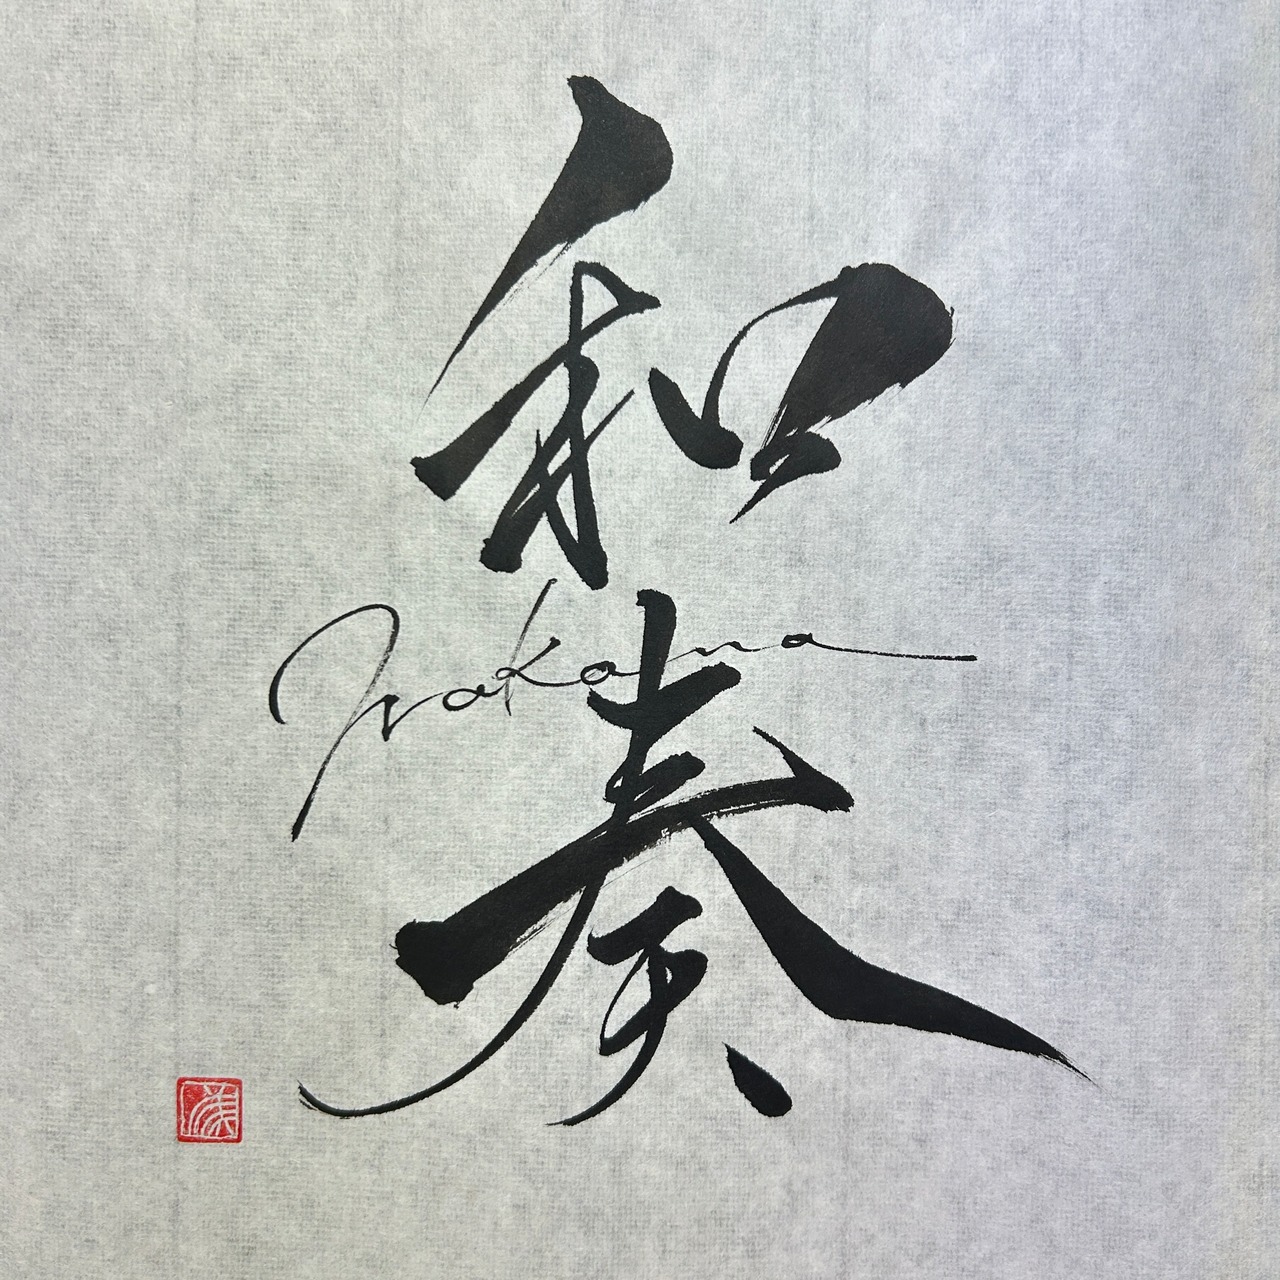 和
Wakana
奏